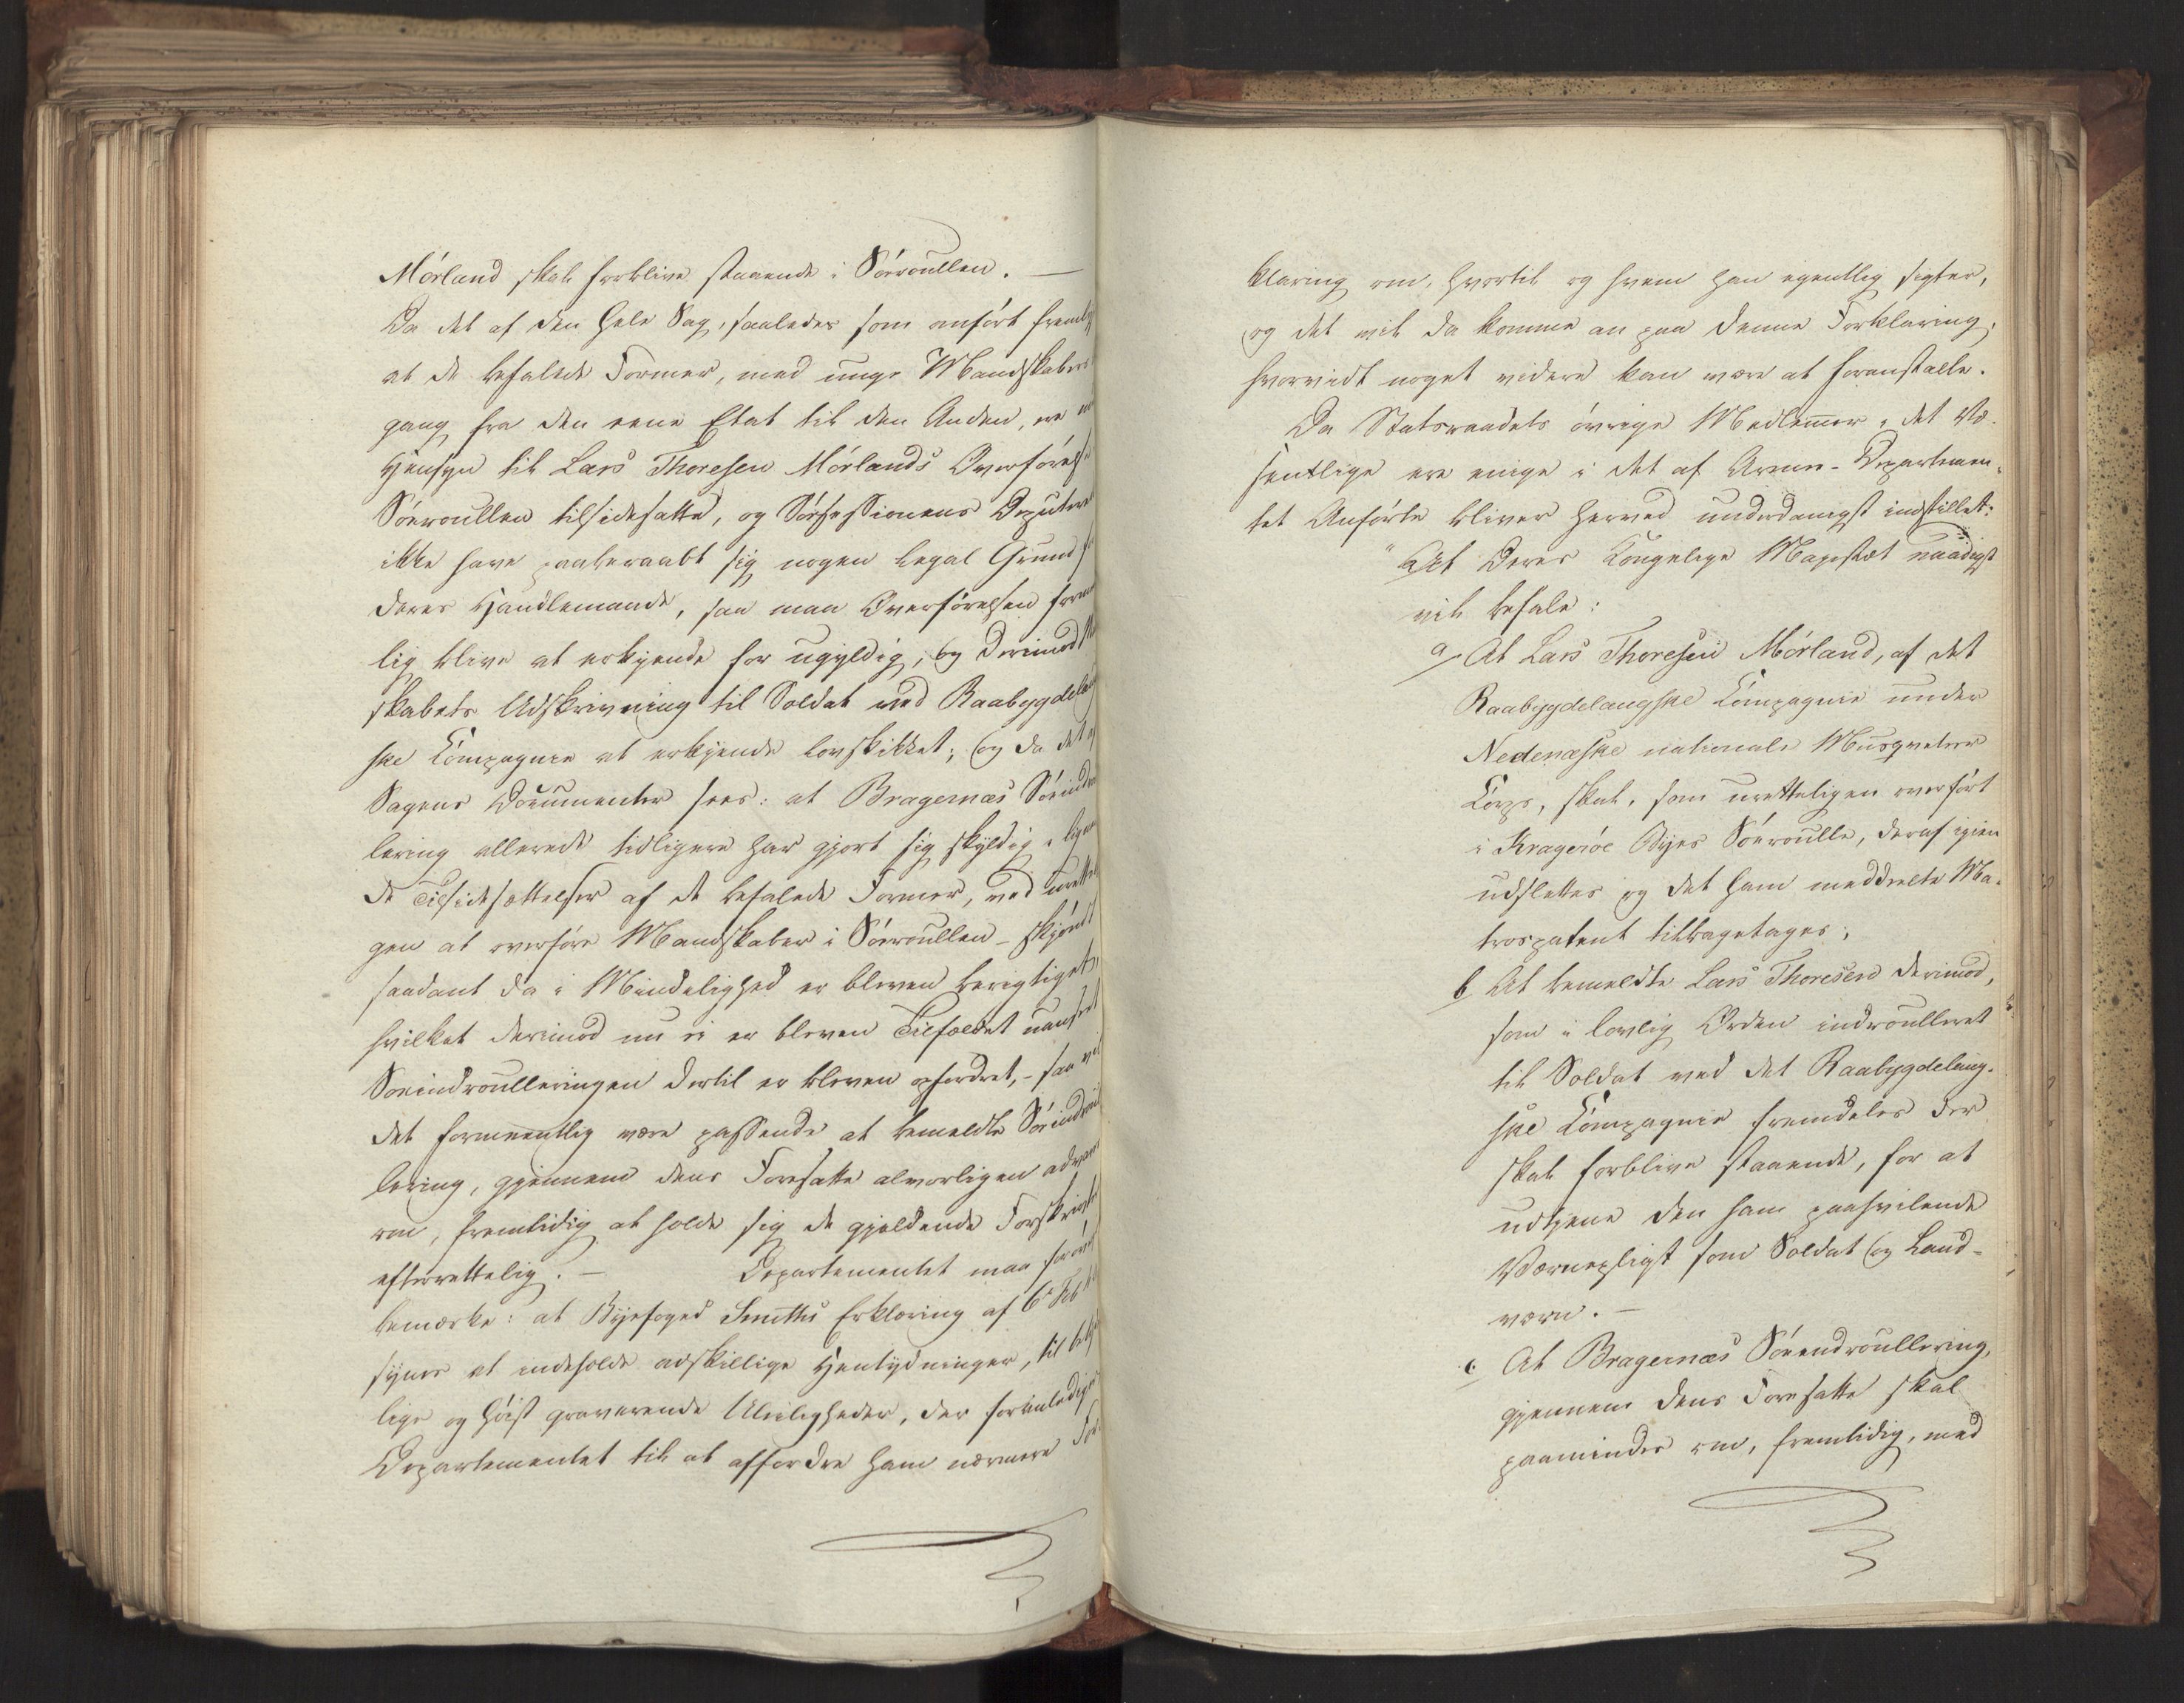 Mörland skal forblive staaende i Söeroullen. —
Da det af den hele Sag, saaledes som anfört fremly
at de befalede Former, med unge Mandskabers
gang fra den eene Etat til den Anden, ere
Hensyn til Lars Thoresen Mörlands Overförelse
Söeroullen tilsidesatte, og Söesessionens Deputere
ikke have paaberaabt sig nogen legal Grund f
deres Handlemaade, saa maa Overförelsen forme
lig blive at erkjende for ugyldig, og derimod
skabets Udskrivning til Soldat ved Raabygdelau
ske Compagnie at erkjende lovskikket; og da det af
Sagens Documenter sees: at Bragernæs Söeindro
lering allerede tidligere har gjort sig skyldig i lignen
de Tilsidesættelser af de befalede Former, ved uretteli
gen at overföre Mandskaber i Söeroullen – skjöndt
saadant da i Mindelighed er bleven berigtiget,
hvilket derimod nu ei er bleven Tilfældet uanseet
Söeindroulleringen dertil er bleven opfordret, – saa vil
det formeentlig være passende at bemeldte Söeindroul
lering, gjennem dens Foresatte alvorligen advares
om, fremtidig at holde sig de gjeldende Forskrifter
efterrettelig. — Departementet maa forövr
bemærke: at Byefoged Smiths Erklæring af 6e Feb
synes at indeholde adskillige Hentydninger, til
lige og höist graverende Uleiligheder, der foranledige
Departementet til at affordre ham nærmere For-
klaring om, hvortil og hvem han egentlig sigter,
og det vil da komme an paa denne Forklaring,
hvorvidt noget videre kan være at foranstalte.
Da Statsraadets övrige Medlemer i det Væ-
sentlige ere enige i det af Armee-Departemen-
tet Anförte bliver herved underdanigst indstillet:
"At Deres Kongelige Majestæt naadigst
vil befale:
a/ At Lars Thoresen Mörland, af det
Raabygdelaugske Compagnie under
Nedenæske nationale Musqueteer
Corps, skal, som uretteligen overfört
i Krageröe Byes Söeroulle, deraf igien
udslettes og det ham meddeelte Ma-
trospatent tilbagetages;
b/ At bemeldte Lars Thoresen derimod,
som i lovlig Orden indroulleret
til Soldat ved det Raabygdelaug-
ske Compagnie fremdeles der
skal forblive staaende, for at
udtjene den ham paahvilende
Værnepligt som Soldat og Land-
værn. —
c/ At Bragernæs Söeindroullering,
gjennem dens Foresatte skal
paamindes om, fremtidig, med